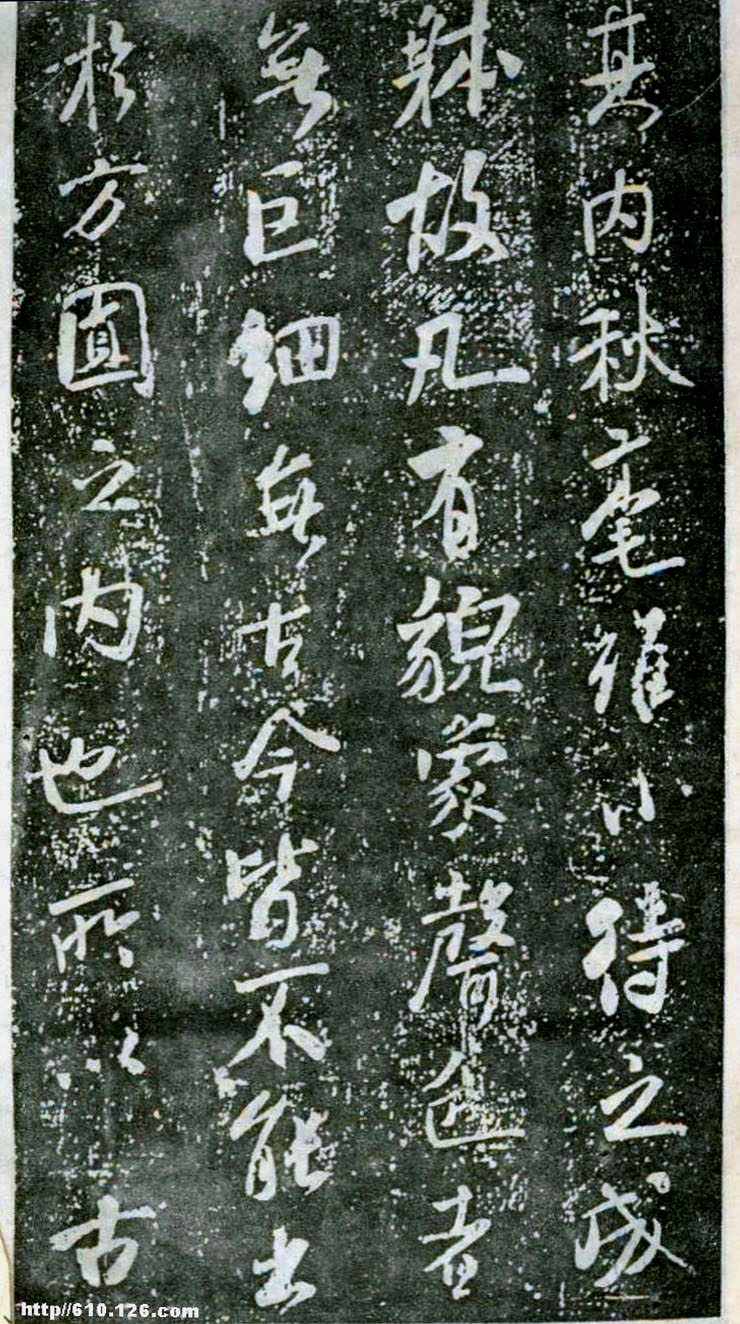 其内秋毫雖小待之成
躰故凡有貌蒙聲色者
無巨細無古今皆不能出
於方圓之内也所以古
http//610.126.com